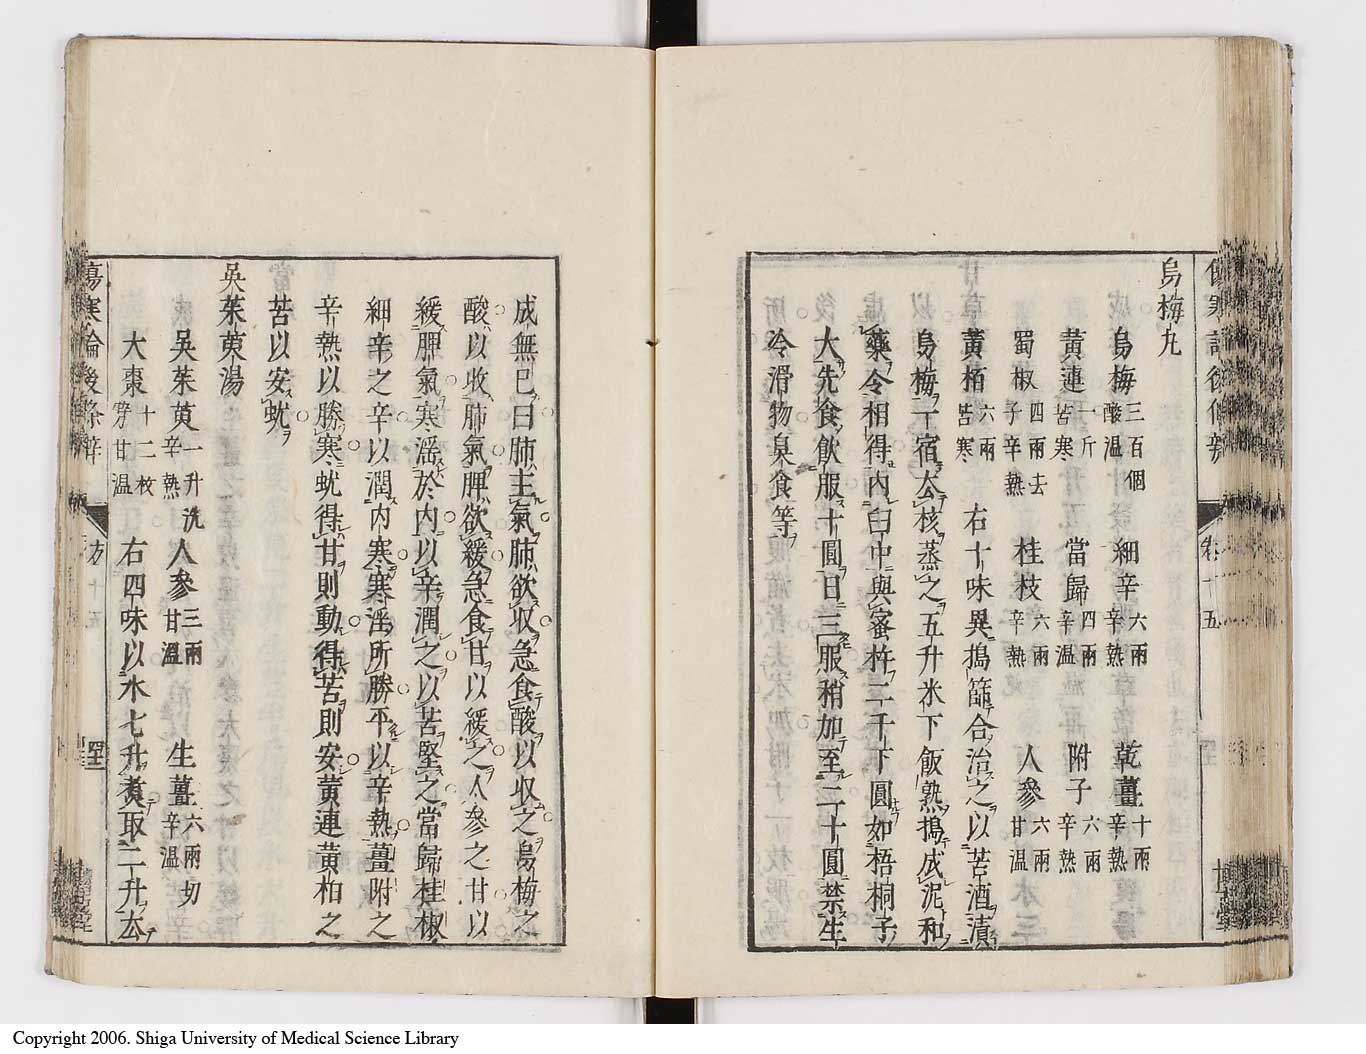 烏梅丸
烏梅三百個酸温 細辛六兩辛熱 乾薑十兩辛熱
黃連一斤苦寒 當歸四兩辛温 附子六兩辛熱
蜀椒四兩去子辛熱 桂枝六兩辛熱 人參六兩甘温
黃栢六兩苦寒 右十味異搗篩合治之以苦酒漬
烏梅一宿去核蒸之五升米下飯熟搗成泥和
藥令相得內臼中與蜜杵二千下圓如梧桐子
大先食飲服十圓日三服稍加至二十圓禁生
冷滑物臭食等
成無已曰肺主氣肺欲収急食酸以収之烏梅之
酸以收肺氣脾欲緩急食甘以緩之人參之甘以
緩脾氣寒淫於內以辛潤之以苦堅之當歸桂椒
細辛之辛以潤內寒寒淫所勝平以辛熱薑附之
辛熱以勝寒蚘得甘則動得苦則安黃連黃柏之
苦以安蚘
吳茱萸湯
吳茱萸一升洗辛熱 人參三兩甘温 生薑六兩切辛温
大棗十二枚擘甘温 右四味以水七升煮取二升去
傷寒論後條辨 方十五
Copyright 2006. Shiga University of Medical Science Library